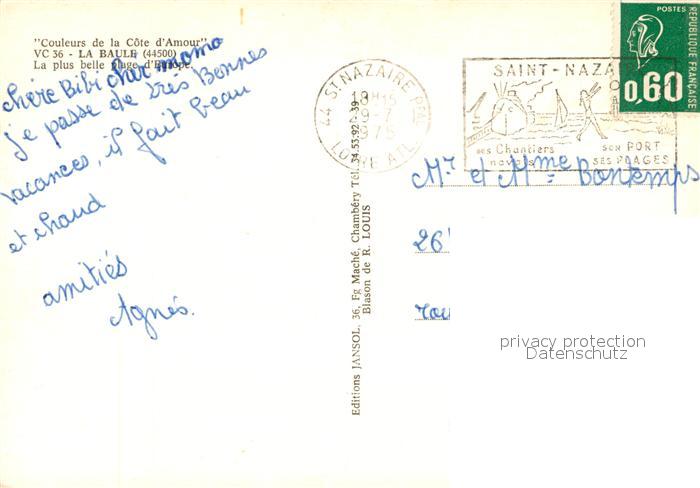 "Couleurs de la Côte d'Amour"
VC 36 - LA BAULE (44500)
La plus belle plage d'Europe.
chère Bibi cher momo
je passe de très Bonnes
vacances, il fait beau
et chaud
amitiés
Agnès.
Editions JANSOL, 36, Fg Maché, Chambéry Tél. 34-53.92 - 39
Blason de R. LOUIS
44 ST NAZAIRE PPAL
18H15
9-7
1975
LOIRE ATL.
SAINT-NAZA
ses Chantiers
navals
son PORT
SES PLAGES
POSTES
RÉPUBLIQUE FRANÇAISE
0,60
Mr et Mme Bontemps
26
rou
privacy protection
Datenschutz